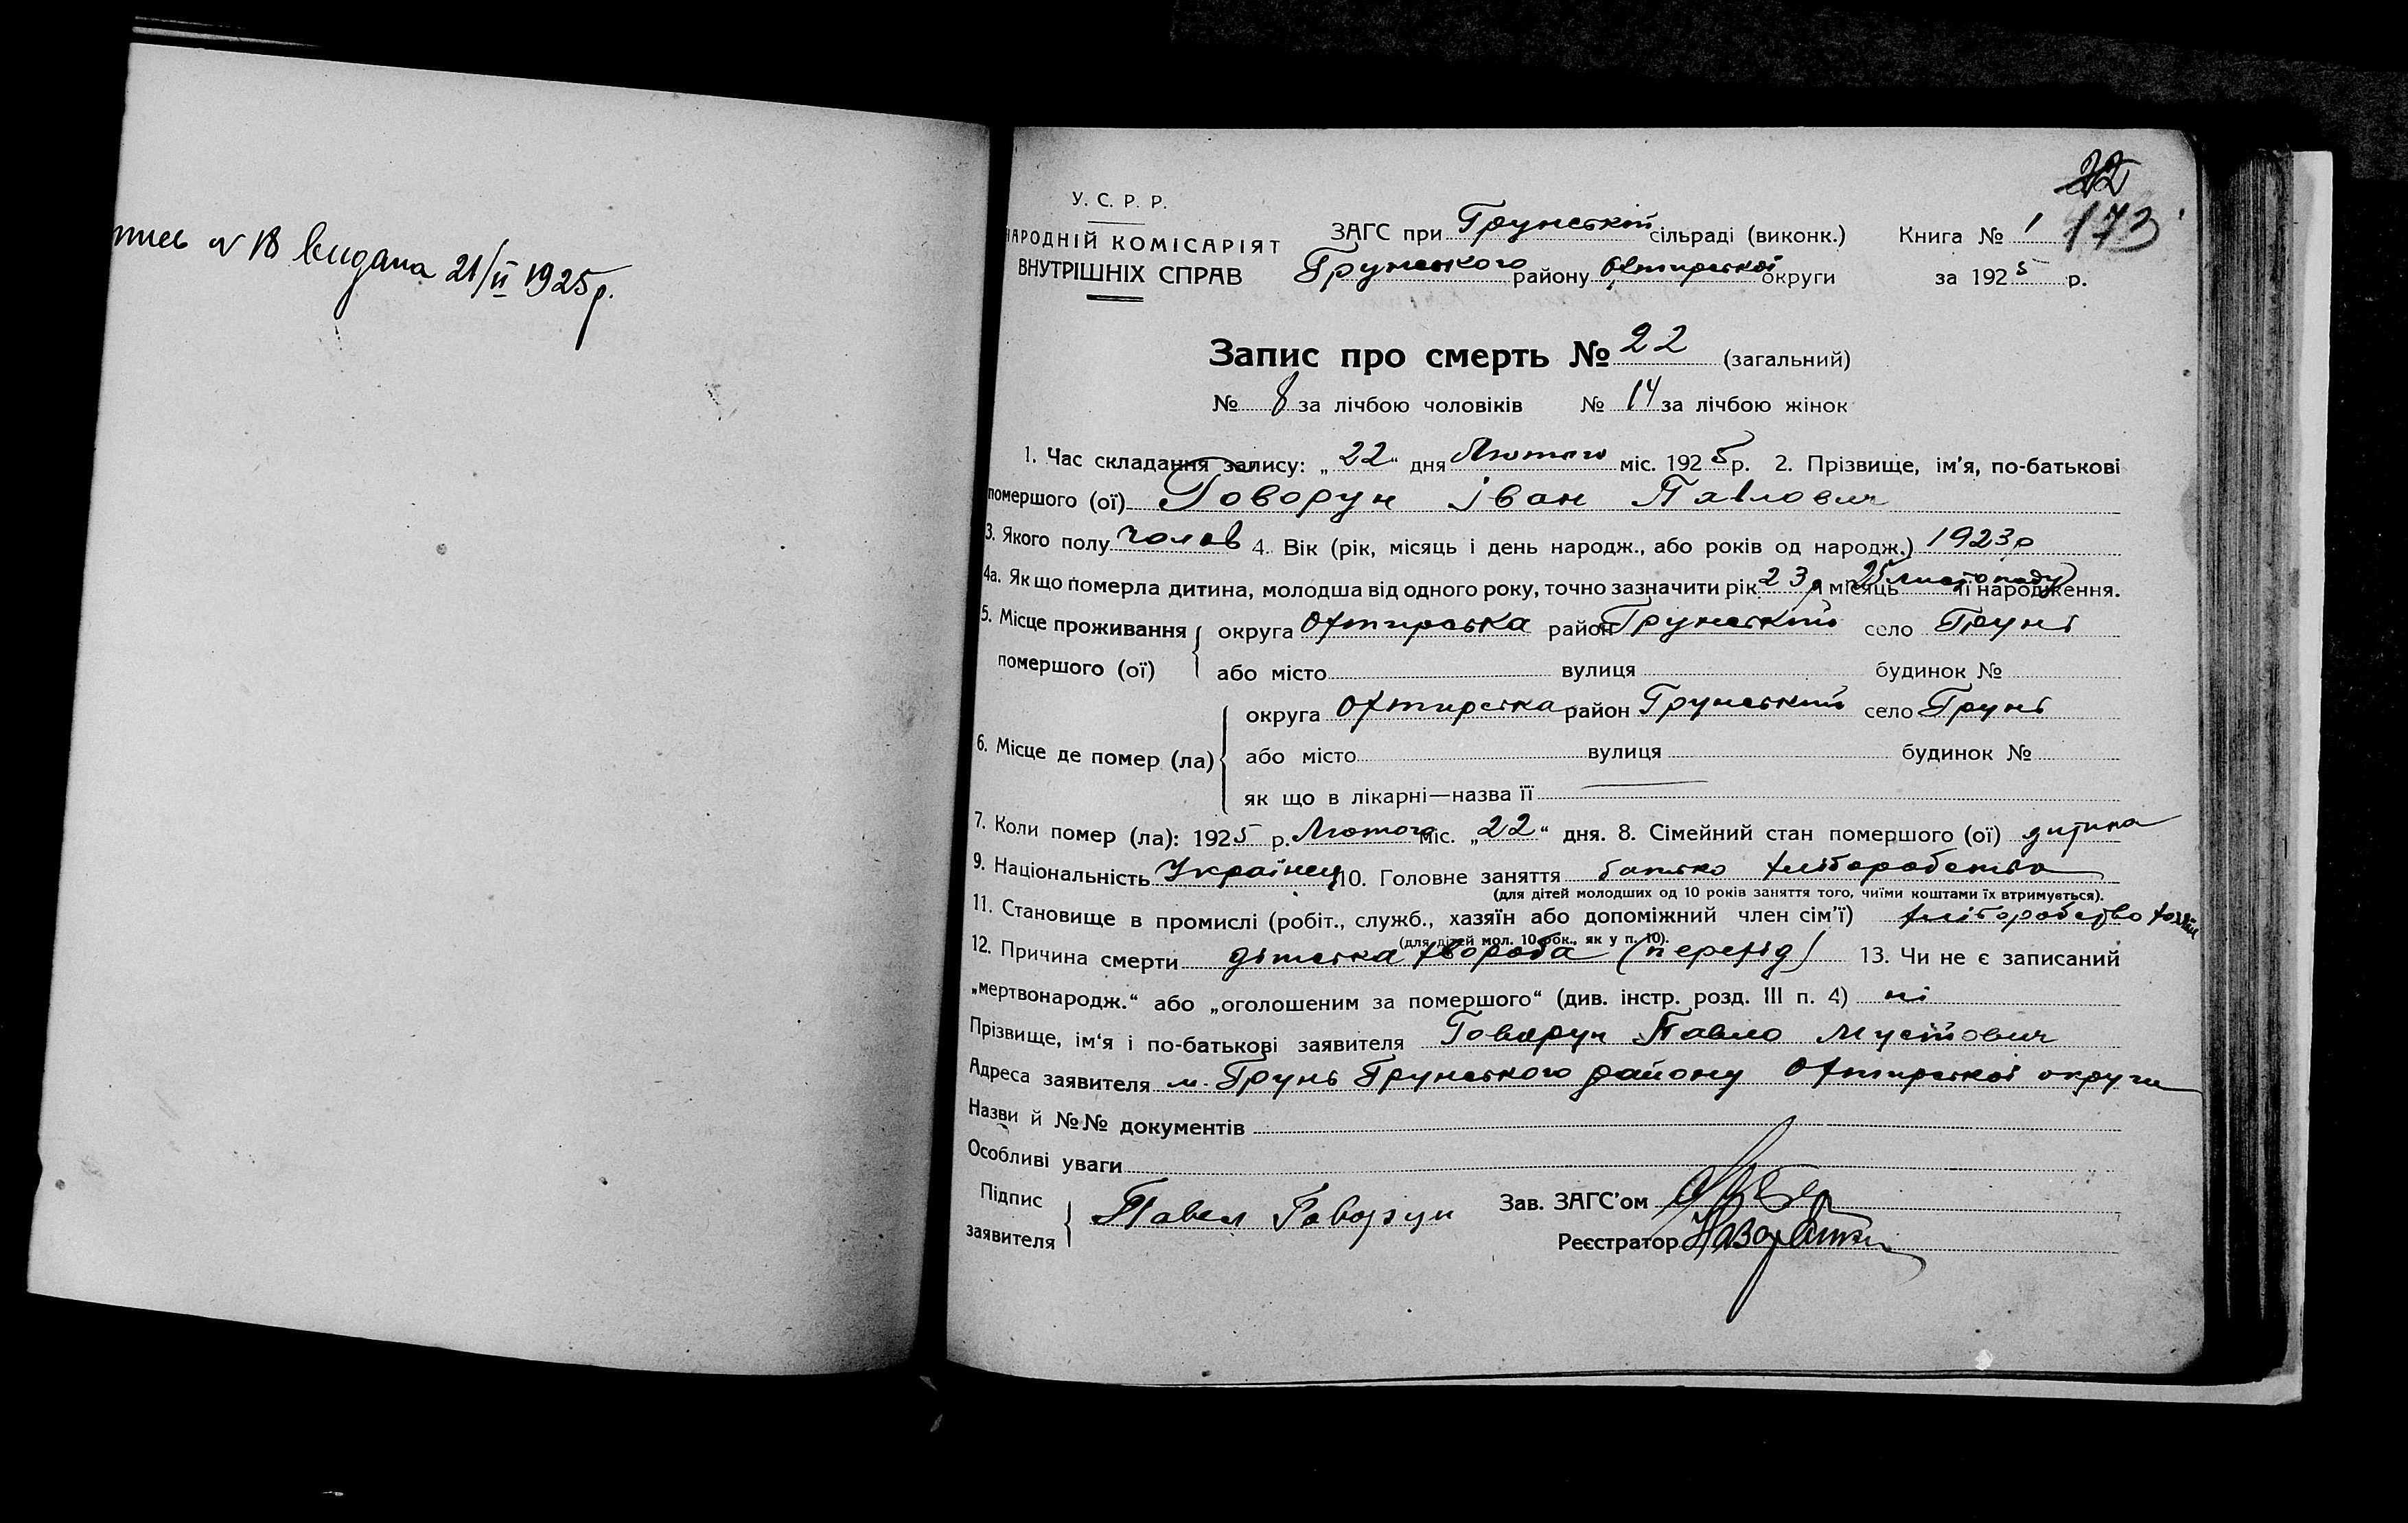 № 18 видана 21/II 1925 р.
22
173
У. С. Р. Р.
НАРОДНІЙ КОМІСАРІЯТ
ВНУТРІШНІХ СПРАВ
ЗАГС при Грунській сільраді (виконк.) Книга № 1
Грунського району Охтирської округи за 1925 р.
Запис про смерть № 22 (загальний)
№ 8 за лічбою чоловіків № 14 за лічбою жінок
1. Час складання запису: „22“ дня Лютого міс. 1925 р. 2. Прізвище, ім'я, по-батькові
помершого (ої) Говорун Іван Павлович
3. Якого полу чолов 4. Вік (рік, місяць і день народж., або років од народж.) 1923 р
4а. Як що померла дитина, молодша від одного року, точно зазначити рік 23 й місяць 25 листопаду її народження.
5. Місце проживання округа Охтирська район Грунський село Грунь
помершого (ої) або місто вулиця будинок №
округа Охтирська район Грунський село Грунь
6. Місце де помер (ла) або місто вулиця будинок №
як що в лікарні—назва її
7. Коли помер (ла): 1925 р. Лютого міс. „22“ дня. 8. Сімейний стан помершого (ої) дитина
9. Національність Українец 10. Головне заняття батько хліборобство
(для дітей молодших од 10 років заняття того, чиїми коштами їх втримується).
11. Становище в промислі (робіт., служб., хазяїн або допоміжний член сім'ї) хліборобство хазяїн
(для дітей мол. 10 рок., як у п. 10).
12. Причина смерти дітська хвороба (перехід) 13. Чи не є записаний
„мертвонародж.“ або „оголошеним за помершого“ (див. інстр. розд. III п. 4) ні
Прізвище, ім'я і по-батькові заявителя Говорун Павло
Адреса заявителя м. Грунь Грунського району Охтирської округи
Назви й №№ документів
Особливі уваги
Підпис
заявителя Павел Говорун Зав. ЗАГС'ом
Реєстратор